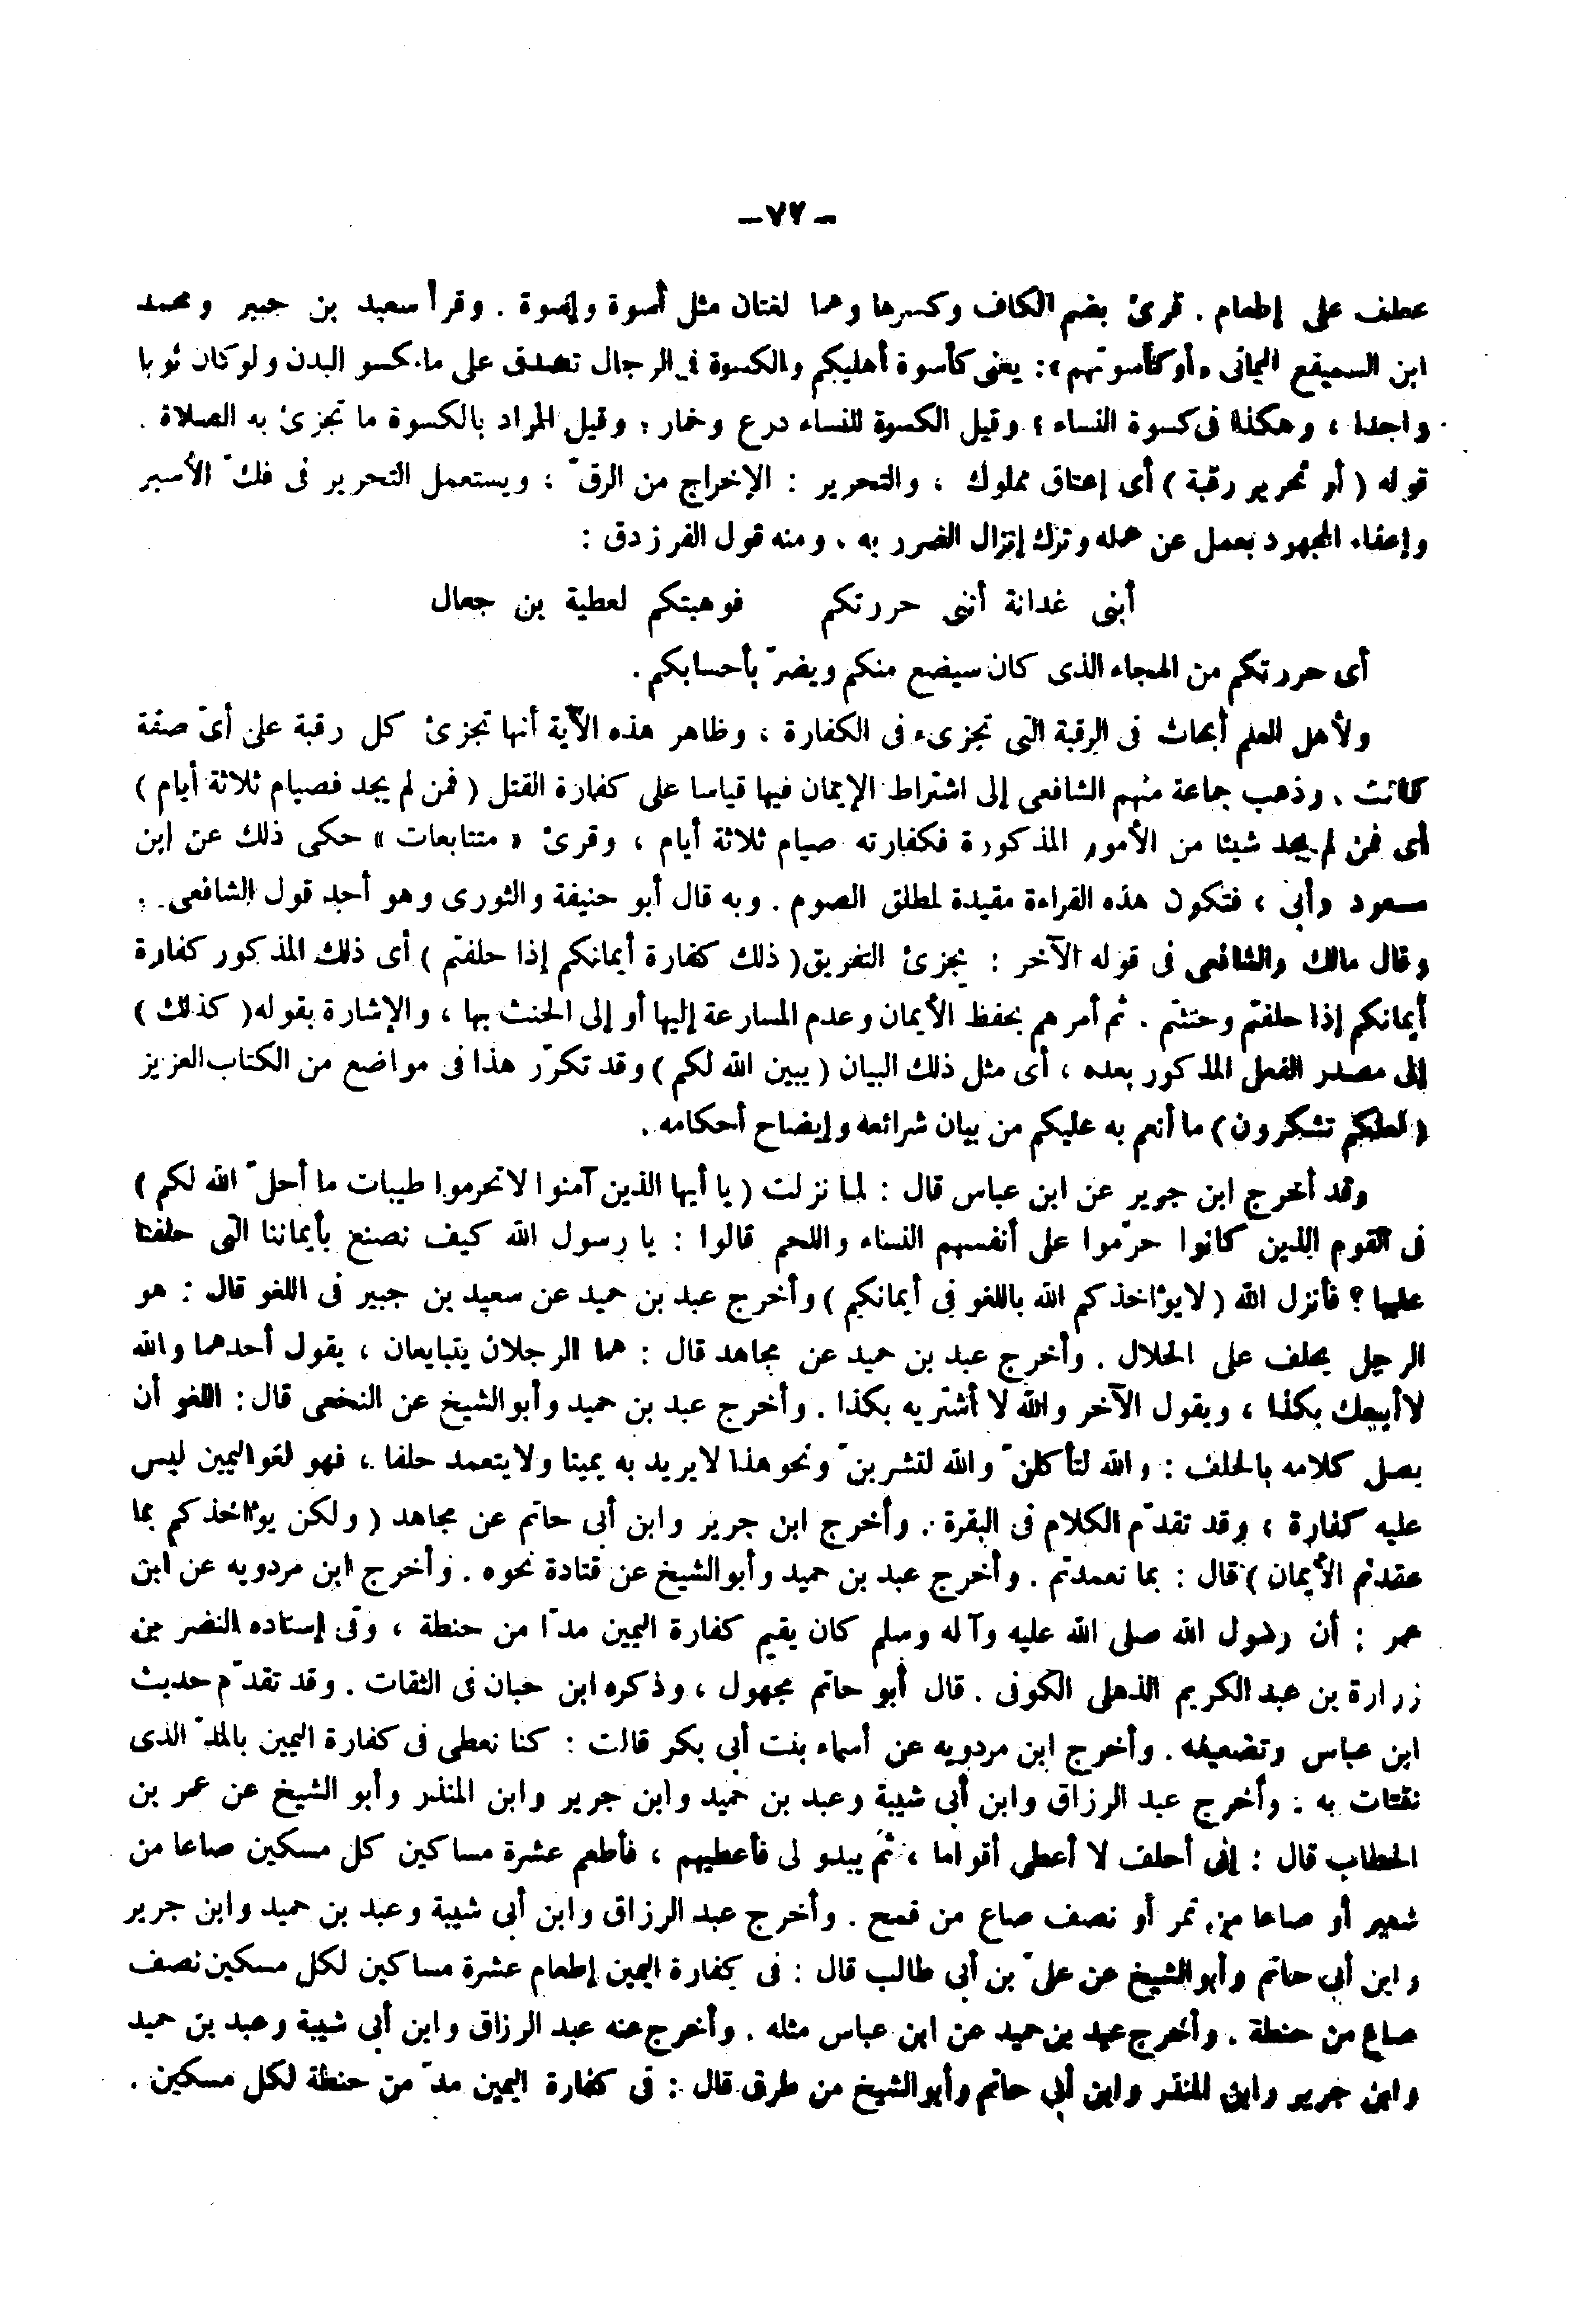 - ٧٢ -
عطف على إطعام . قرئ بضم الكاف وكسرها وهما لغتان مثل أسوة وإسوة . وقرأ سعيد بن جبير ومحمد
ابن السميفع اليمانى « أو كأسوتهم » : يعنى كأسوة أهليكم والكسوة فى الرجال تصدق على ما يكسو البدن ولو كان ثوبا
واحدا ، وهكذا فى كسوة النساء ؛ وقيل الكسوة للنساء درع وخمار ؛ وقيل المراد بالكسوة ما تجزئ به الصلاة .
قوله ( أو تحرير رقبة ) أى إعتاق مملوك ، والتحرير : الإخراج من الرقّ ، ويستعمل التحرير فى فكّ الأسير
وإعفاء المجهود بعمل عن عمله وترك إنزال الضرر به ، ومنه قول الفرزدق :
أبنى غدانة أننى حررتكم فوهبتكم لعطية بن جعال
أى حررتكم من الهجاء الذى كان سيضع منكم ويضرّ بأحسابكم .
ولأهل العلم أبحاث فى الرقبة التى تجزىء فى الكفارة ، وظاهر هذه الآية أنها تجزئ كل رقبة على أىّ صفة
كانت . وذهب جماعة منهم الشافعى إلى اشتراط الإيمان فيها قياسا على كفارة القتل ( فمن لم يجد فصيام ثلاثة أيام )
أى فمن لم يجد شيئا من الأمور المذكورة فكفارته صيام ثلاثة أيام ، وقرئ « متتابعات » حكى ذلك عن ابن
مسعود وأبى ، فتكون هذه القراءة مقيدة لمطلق الصوم . وبه قال أبو حنيفة والثورى وهو أحد قول الشافعى .
وقال مالك والشافعى فى قوله الآخر : يجزئ التفريق ( ذلك كفارة أيمانكم إذا حلفتم ) أى ذلك المذكور كفارة
أيمانكم إذا حلفتم وحنثتم . ثم أمرهم بحفظ الأيمان وعدم المسارعة إليها أو إلى الحنث بها ، والإشارة بقوله ( كذلك )
إلى مصدر الفعل المذكور بعده ، أى مثل ذلك البيان ( يبين الله لكم ) وقد تكرّر هذا فى مواضع من الكتاب العزيز
( لعلكم تشكرون ) ما أنعم به عليكم من بيان شرائعه وإيضاح أحكامه .
وقد أخرج ابن جرير عن ابن عباس قال : لما نزلت ( يا أيها الذين آمنوا لا تحرموا طيبات ما أحلّ الله لكم )
فى القوم الذين كانوا حرّموا على أنفسهم النساء واللحم قالوا : يا رسول الله كيف نصنع بأيماننا التى حلفنا
عليها ؟ فأنزل الله ( لا يؤاخذكم الله باللغو فى أيمانكم ) وأخرج عبد بن حميد عن سعيد بن جبير فى اللغو قال : هو
الرجل يحلف على الحلال . وأخرج عبد بن حميد عن مجاهد قال : هما الرجلان يتبايعان ، يقول أحدهما والله
لا أبيعك بكذا ، ويقول الآخر والله لا أشتريه بكذا . وأخرج عبد بن حميد وأبو الشيخ عن النخعى قال : اللغو أن
يصل كلامه بالحلف : والله لتأكلنّ والله لتشربنّ ونحو هذا لا يريد به يمينا ولا يتعمد حلفا ، فهو لغو اليمين ليس
عليه كفارة ، وقد تقدّم الكلام فى البقرة . وأخرج ابن جرير وابن أبى حاتم عن مجاهد ( ولكن يؤاخذكم بما
عقدتم الأيمان ) قال : بما تعمدتم . وأخرج عبد بن حميد وأبو الشيخ عن قتادة نحوه . وأخرج ابن مردويه عن ابن
عمر : أن رسول الله صلى الله عليه وآله وسلم كان يقيم كفارة اليمين مدّا من حنطة ، وفى إسناده النضر بن
زرارة بن عبد الكريم الذهلى الكوفى . قال أبو حاتم مجهول ، وذكره ابن حبان فى الثقات . وقد تقدّم حديث
ابن عباس وتضعيفه . وأخرج ابن مردويه عن أسماء بنت أبى بكر قالت : كنا نعطى فى كفارة اليمين بالمدّ الذى
نقتات به . وأخرج عبد الرزاق وابن أبى شيبة وعبد بن حميد وابن جرير وابن المنذر وأبو الشيخ عن عمر بن
الخطاب قال : إنى أحلف لا أعطى أقواما ، ثم يبدو لى فأعطيهم ، فأطعم عشرة مساكين كل مسكين صاعا من
شعير أو صاعا من تمر أو نصف صاع من قمح . وأخرج عبد الرزاق وابن أبى شيبة وعبد بن حميد وابن جرير
وابن أبى حاتم وأبو الشيخ عن علىّ بن أبى طالب قال : فى كفارة اليمين إطعام عشرة مساكين لكل مسكين نصف
صاع من حنطة . وأخرج عبد بن حميد عن ابن عباس مثله . وأخرج عنه عبد الرزاق وابن أبى شيبة وعبد بن حميد
وابن جرير وابن المنذر وابن أبى حاتم وأبو الشيخ من طرق قال : فى كفارة اليمين مدّ من حنطة لكل مسكين .